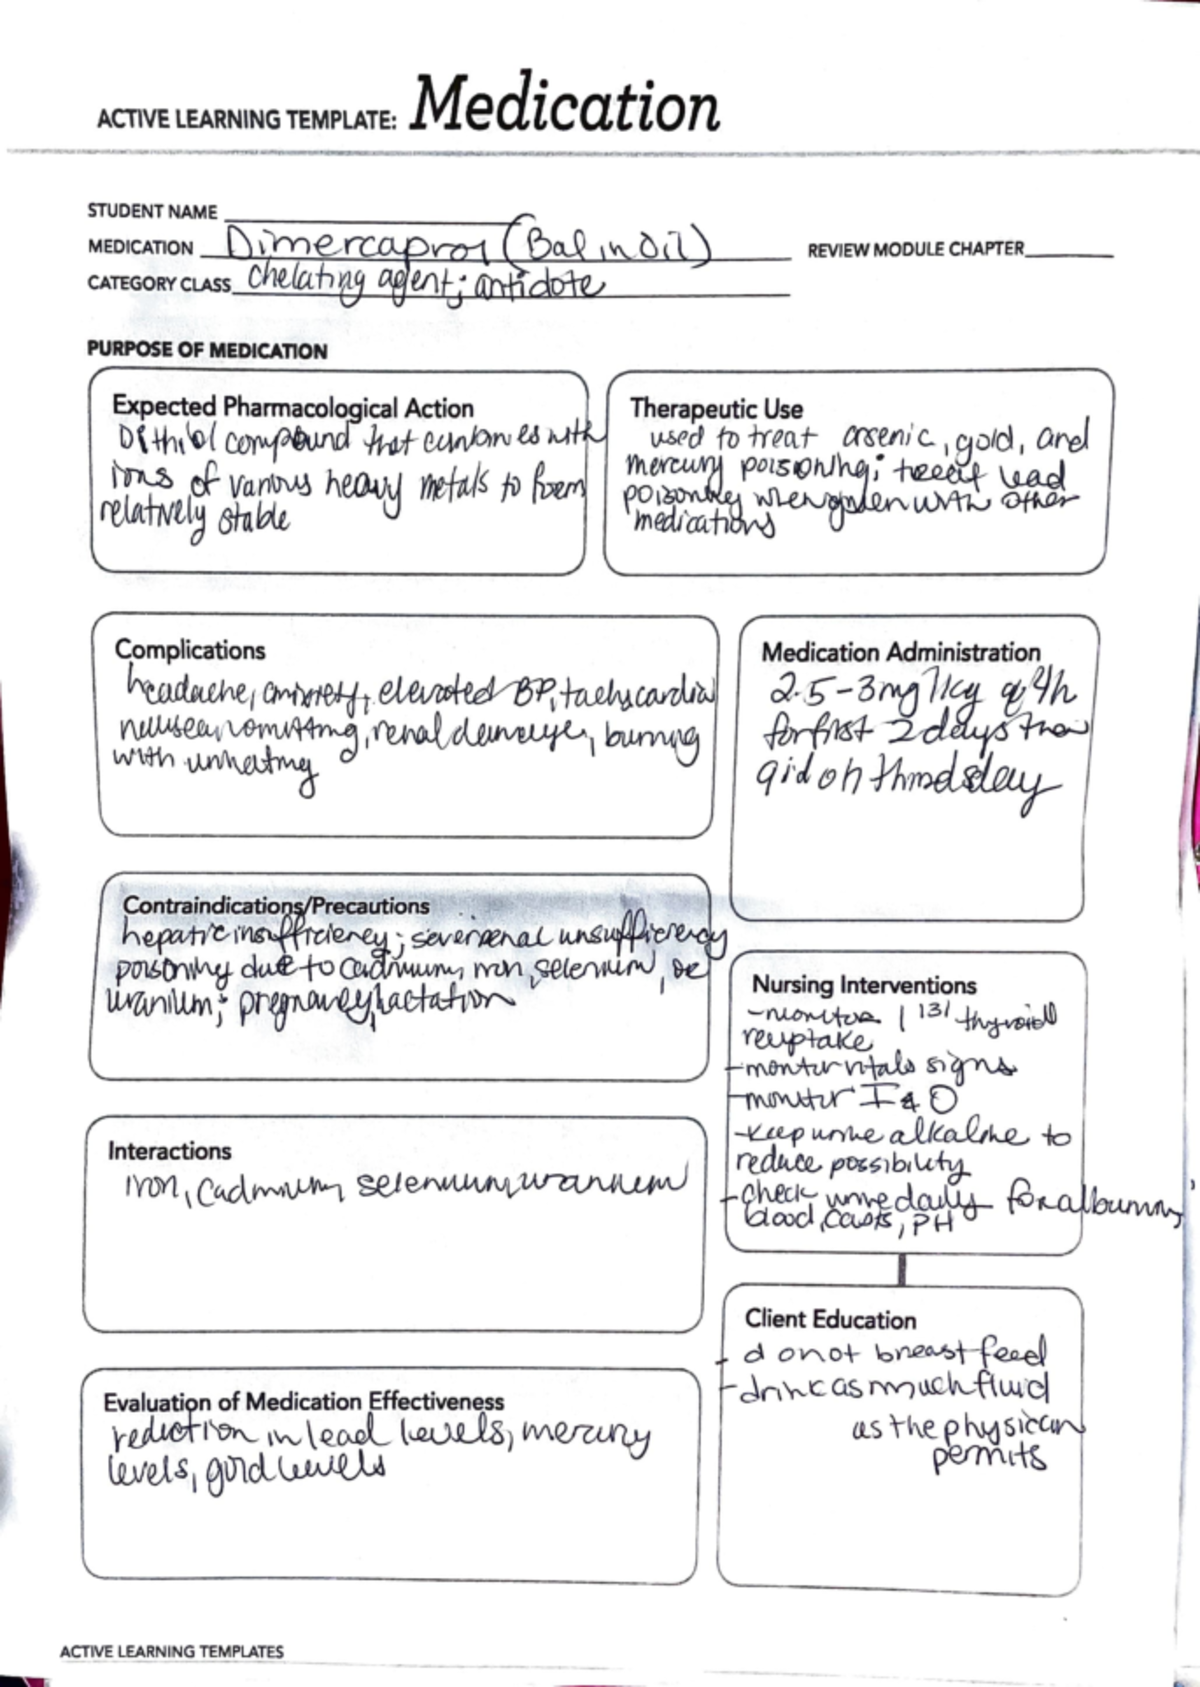 ACTIVE LEARNING TEMPLATE: Medication
STUDENT NAME
MEDICATION Dimercaprol (Bal in Oil)
REVIEW MODULE CHAPTER
CATEGORY CLASS chelating agent; antidote
PURPOSE OF MEDICATION
Expected Pharmacological Action
Dithiol compound that combines with
ions of various heavy metals to form
relatively stable
Therapeutic Use
used to treat arsenic, gold, and
mercury poisoning; treat lead
poisoning when given with other
medications
Complications
headache, anxiety, elevated BP, tachycardia
nausea, vomitting, renal damage, burning
with urinating
Medication Administration
2.5-3mg/kg q4h
for first 2 days then
qid on third day
Contraindications/Precautions
hepatic insufficiency; severe renal unsufficiency
poisoning due to cadmium, iron, selenium, or
uranium; pregnancy, lactation
Nursing Interventions
-monitor I 131 thyroid
reuptake
-monitor vitals signs
-monitor I & O
-keep urine alkaline to
reduce possibility
-check urine daily for albumin,
blood, casts, PH
Interactions
iron, cadmium, selenium, uranium
Client Education
- donot breast feed
- drink as much fluid
as the physician
permits
Evaluation of Medication Effectiveness
reduction in lead levels, mercury
levels, gold levels
ACTIVE LEARNING TEMPLATES